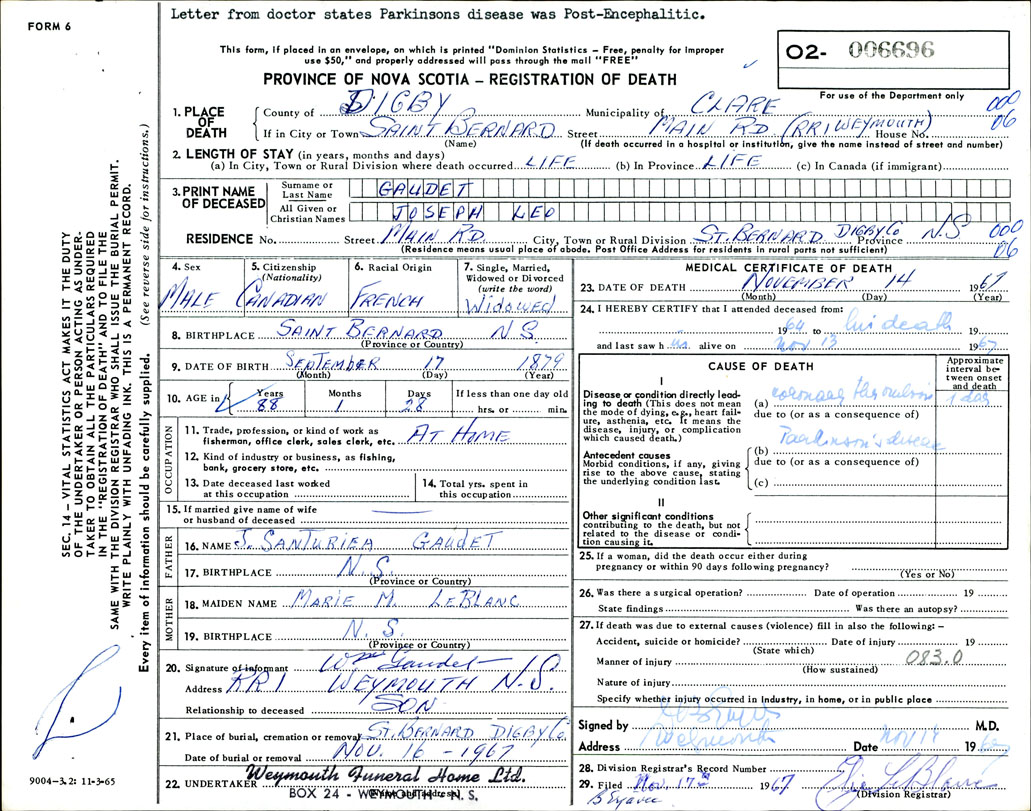 FORM 6
Letter from doctor states Parkinsons disease was Post-Encephalitic.
This form, if placed in an envelope, on which is printed "Dominion Statistics – Free, penalty for improper
use $50," and properly addressed will pass through the mail "FREE"
PROVINCE OF NOVA SCOTIA – REGISTRATION OF DEATH
O2- 006696
For use of the Department only
SEC. 14 – VITAL STATISTICS ACT MAKES IT THE DUTY
OF THE UNDERTAKER OR PERSON ACTING AS UNDER-
TAKER TO OBTAIN ALL THE PARTICULARS REQUIRED
IN THE "REGISTRATION OF DEATH" AND TO FILE THE
SAME WITH THE DIVISION REGISTRAR WHO SHALL ISSUE THE BURIAL PERMIT.
WRITE PLAINLY WITH UNFADING INK. THIS IS A PERMANENT RECORD.
Every item of information should be carefully supplied. (See reverse side for instructions.)
9004–3.2: 11-3-65
1. PLACE OF DEATH
County of DIGBY Municipality of CLARE 000
If in City or Town SAINT BERNARD Street MAIN RD (RR1 WEYMOUTH) House No. 06
(Name) (If death occurred in a hospital or institution, give the name instead of street and number)
2. LENGTH OF STAY (in years, months and days)
(a) In City, Town or Rural Division where death occurred LIFE (b) In Province LIFE (c) In Canada (if immigrant)
3. PRINT NAME OF DECEASED
Surname or Last Name GAUDET
All Given or Christian Names JOSEPH LEO
RESIDENCE No. Street MAIN RD. City, Town or Rural Division ST. BERNARD DIGBY CO Province N S 000
(Residence means usual place of abode. Post Office Address for residents in rural parts not sufficient) 06
4. Sex MALE
5. Citizenship (Nationality) CANADIAN
6. Racial Origin FRENCH
7. Single, Married, Widowed or Divorced (write the word) WIDOWED
8. BIRTHPLACE SAINT BERNARD N S.
(Province or Country)
9. DATE OF BIRTH SEPTEMBER 17 1879
(Month) (Day) (Year)
10. AGE in Years 88 Months 1 Days 28 If less than one day old hrs. or min.
OCCUPATION
11. Trade, profession, or kind of work as
fisherman, office clerk, sales clerk, etc. AT HOME
12. Kind of industry or business, as fishing,
bank, grocery store, etc.
13. Date deceased last worked
at this occupation
14. Total yrs. spent in
this occupation
15. If married give name of wife
or husband of deceased
FATHER
16. NAME J. SANTURIEA GAUDET
17. BIRTHPLACE N. S.
(Province or Country)
MOTHER
18. MAIDEN NAME MARIE M. LEBLANC
19. BIRTHPLACE N. S.
(Province or Country)
20. Signature of informant Wm Gaudet
Address RR1 WEYMOUTH N.S.
Relationship to deceased SON
21. Place of burial, cremation or removal ST. BERNARD DIGBY CO.
Date of burial or removal NOV. 16 - 1967
22. UNDERTAKER Weymouth Funeral Home Ltd.
BOX 24 - WEYMOUTH - N. S.
MEDICAL CERTIFICATE OF DEATH
23. DATE OF DEATH NOVEMBER 14 1967
(Month) (Day) (Year)
24. I HEREBY CERTIFY that I attended deceased from:
1964 to his death 19
and last saw him alive on Nov 13 1967
CAUSE OF DEATH
Approximate interval between onset and death
I
Disease or condition directly leading to death (This does not mean the mode of dying, e.g., heart failure, asthenia, etc. It means the disease, injury, or complication which caused death.)
(a) coronary thrombosis 1 day
due to (or as a consequence of)
Antecedent causes
Morbid conditions, if any, giving rise to the above cause, stating the underlying condition last.
Parkinson's disease
(b)
due to (or as a consequence of)
(c)
II
Other significant conditions
contributing to the death, but not related to the disease or condition causing it.
25. If a woman, did the death occur either during
pregnancy or within 90 days following pregnancy?
(Yes or No)
26. Was there a surgical operation? Date of operation 19
State findings Was there an autopsy?
27. If death was due to external causes (violence) fill in also the following: –
Accident, suicide or homicide? Date of injury 19
(State which)
Manner of injury 083.0
(How sustained)
Nature of injury
Specify whether injury occurred in industry, in home, or in public place
Signed by M.D.
Address Weymouth Date Nov 17 1967
28. Division Registrar's Record Number
29. Filed Nov. 17th 1967 LeBlanc
(Division Registrar)